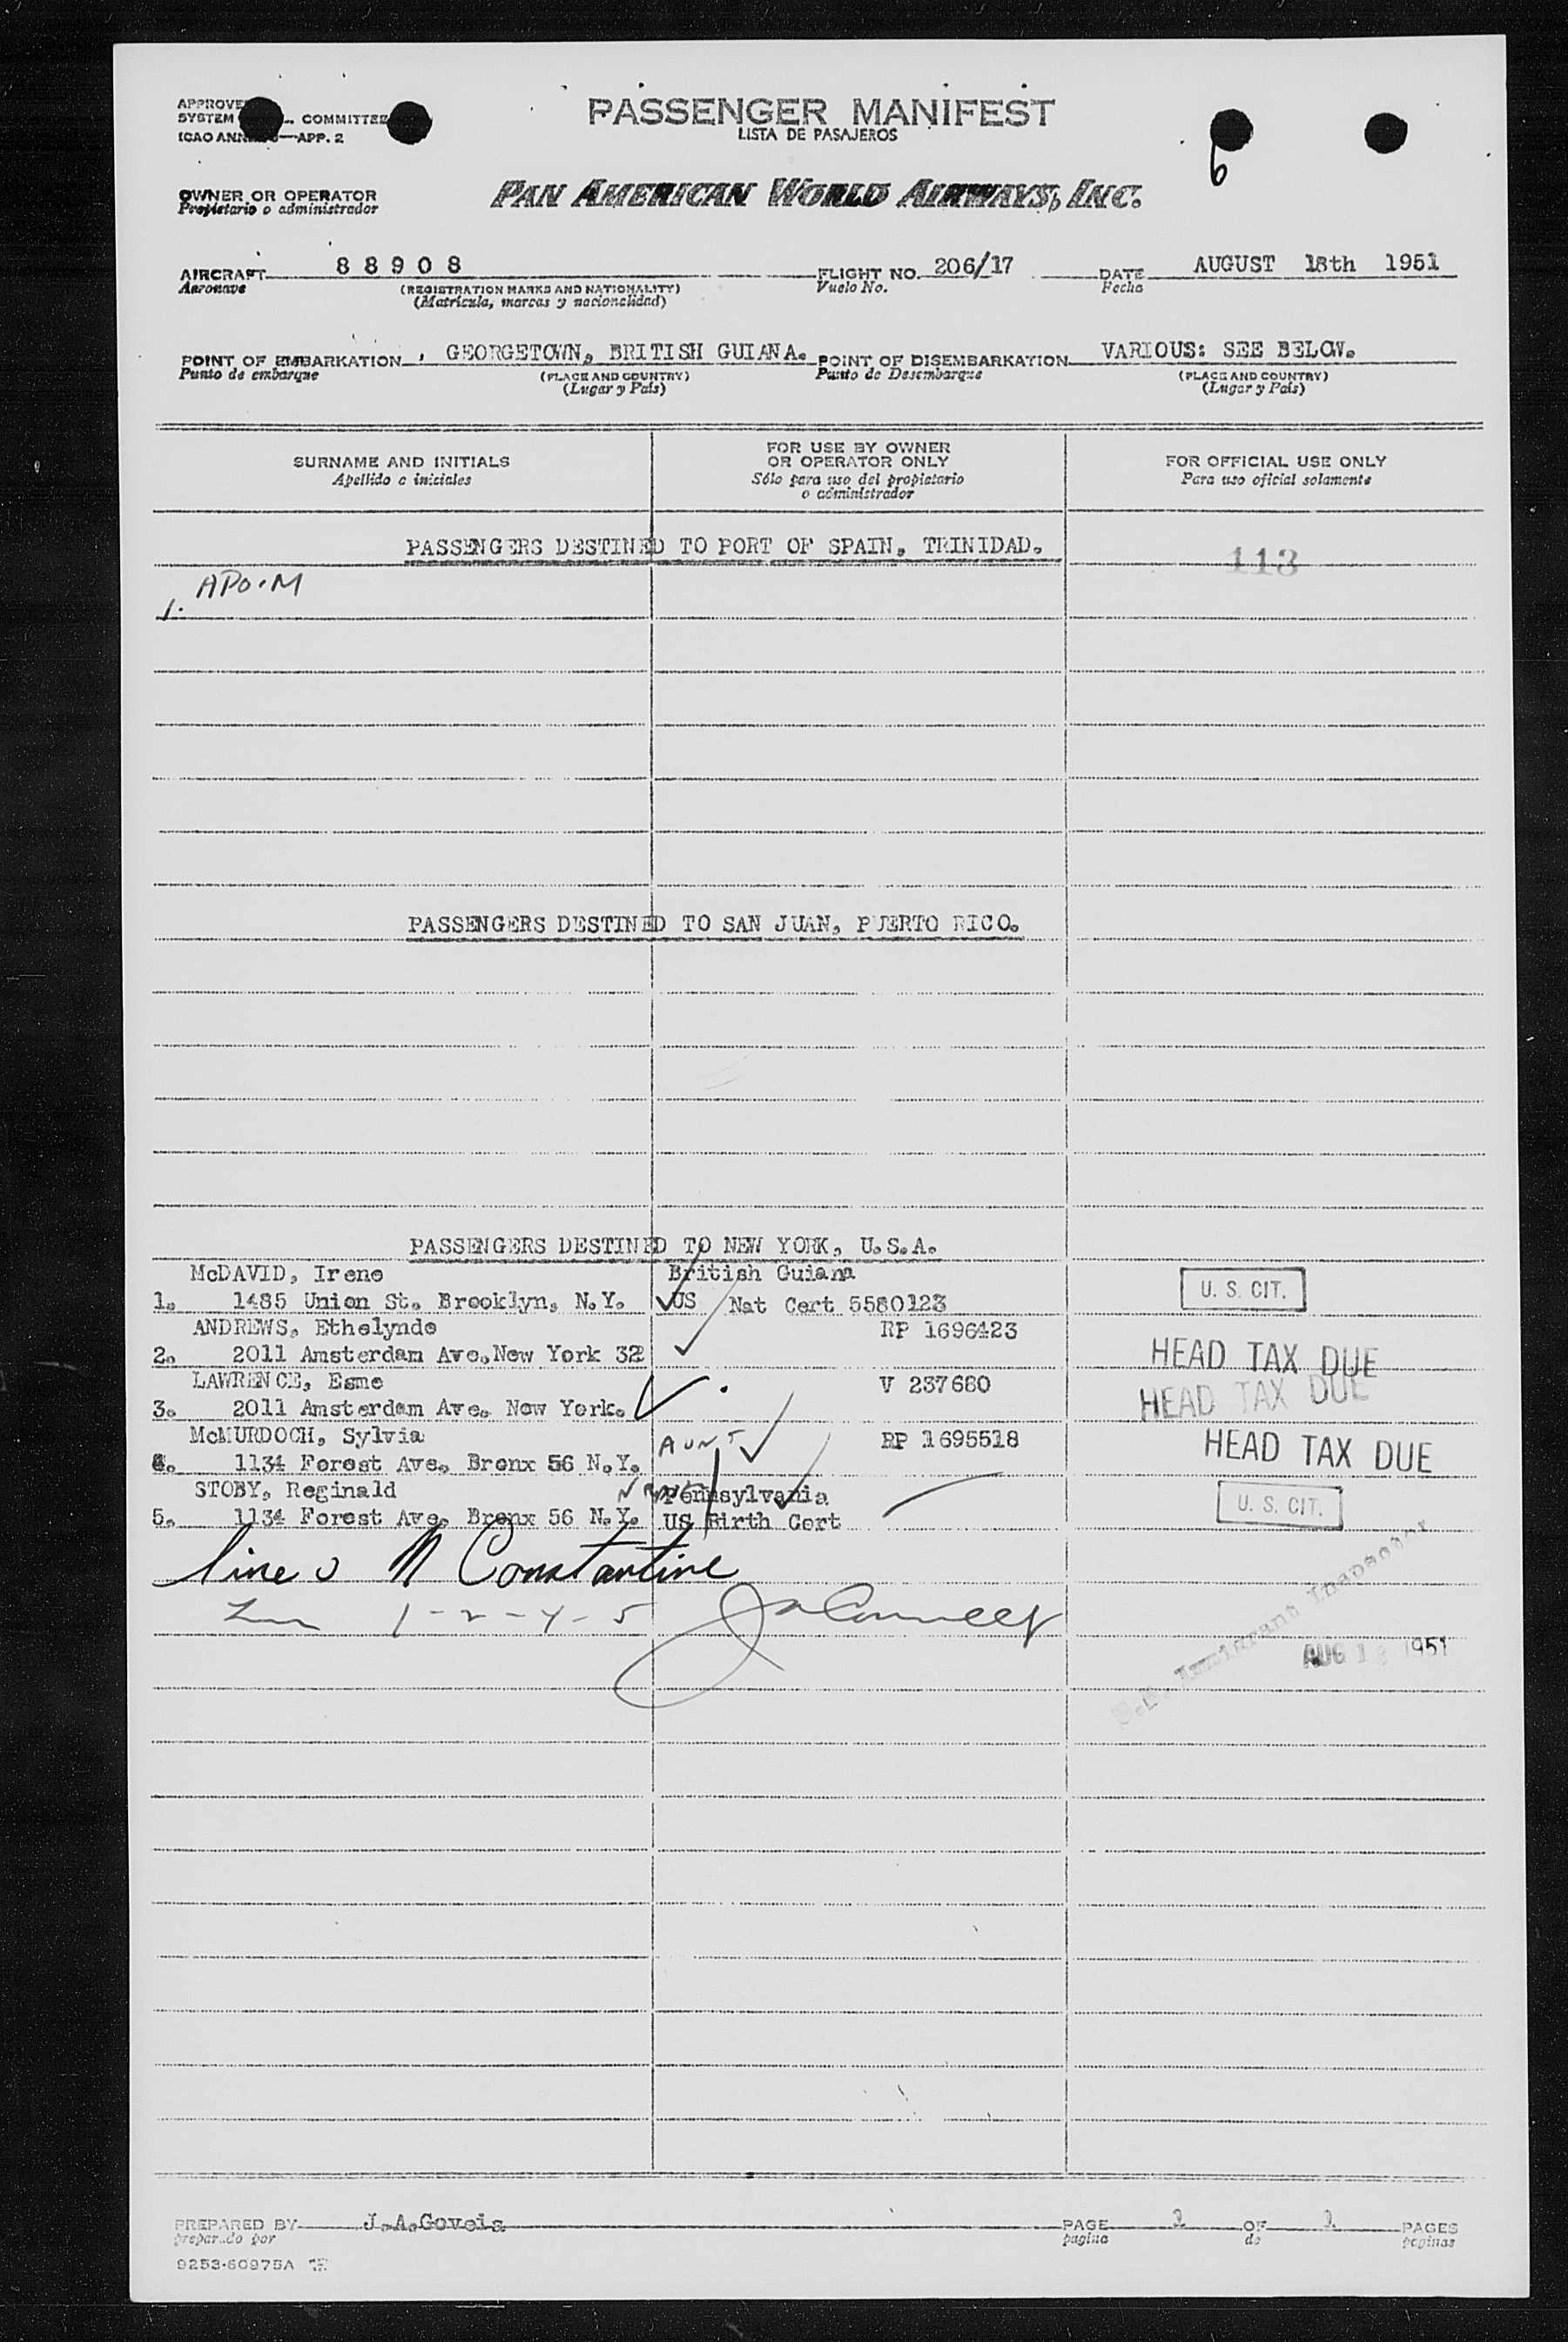 APPROVE
SYSTEM COMMITTEE
ICAO ANN — APP. 2
PASSENGER MANIFEST
LISTA DE PASAJEROS
6
OWNER OR OPERATOR
Propietario o administrador
PAN AMERICAN WORLD AIRWAYS, INC.
AIRCRAFT 88908 FLIGHT NO. 206/17 DATE AUGUST 18th 1951
Aeronave (REGISTRATION MARKS AND NATIONALITY) Vuelo No. Fecha
(Matricula, marcas y nacionalidad)
POINT OF EMBARKATION GEORGETOWN, BRITISH GUIANA. POINT OF DISEMBARKATION VARIOUS: SEE BELOW.
Punto de embarque (PLACE AND COUNTRY) Punto de Desembarque (PLACE AND COUNTRY)
(Lugar y País) (Lugar y País)
SURNAME AND INITIALS
Apellido o iniciales
FOR USE BY OWNER
OR OPERATOR ONLY
Sólo para uso del propietario
o administrador
FOR OFFICIAL USE ONLY
Para uso oficial solamente
PASSENGERS DESTINED TO PORT OF SPAIN, TRINIDAD.
113
1. APO.M
PASSENGERS DESTINED TO SAN JUAN, PUERTO RICO.
PASSENGERS DESTINED TO NEW YORK, U.S.A.
McDAVID, Irene British Guiana
1. 1485 Union St. Brooklyn, N.Y. US Nat Cert 5580123 U. S. CIT.
ANDREWS, Ethelynde RP 1696423
2. 2011 Amsterdam Ave. New York 32 HEAD TAX DUE
LAWRENCE, Esme V 237680
3. 2011 Amsterdam Ave. New York. HEAD TAX DUE
McMURDOCH, Sylvia AUNT RP 1695518
4. 1134 Forest Ave. Bronx 56 N.Y. HEAD TAX DUE
STOBY, Reginald Pennsylvania
5. 1134 Forest Ave. Bronx 56 N.Y. US Birth Cert U. S. CIT.
line 3 N Constantine
1-2-4-5
U.S. Immigrant Inspector
AUG 18 1951
PREPARED BY J.A.Goveia PAGE 1 OF 1 PAGES
preparado por pagina de paginas
9253-60975A